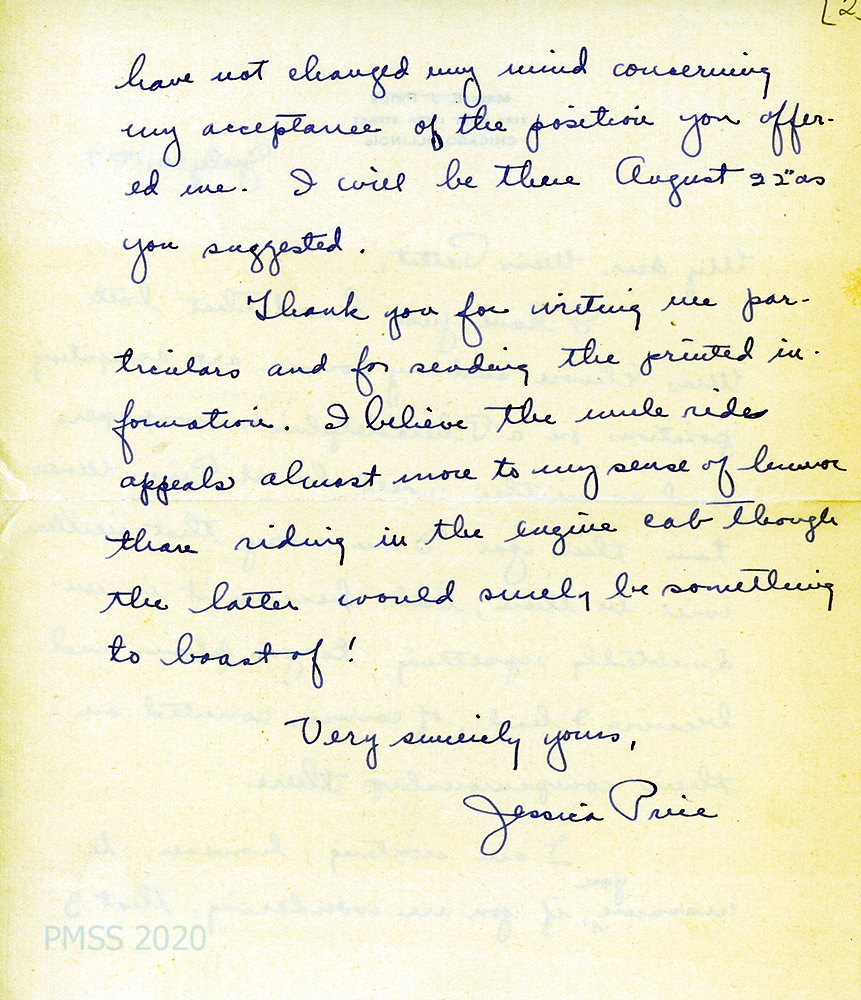 [2
have not changed my mind concerning
my acceptance of the position you offer-
ed me. I will be there August 22" as
you suggested.
Thank you for writing me par-
ticulars and for sending the printed in-
formation. I believe the mule rides
appeals almost more to my sense of humor
than riding in the engine cab though
the latter would surely be something
to boast of!
Very sincerely yours,
Jessica Price
PMSS 2020